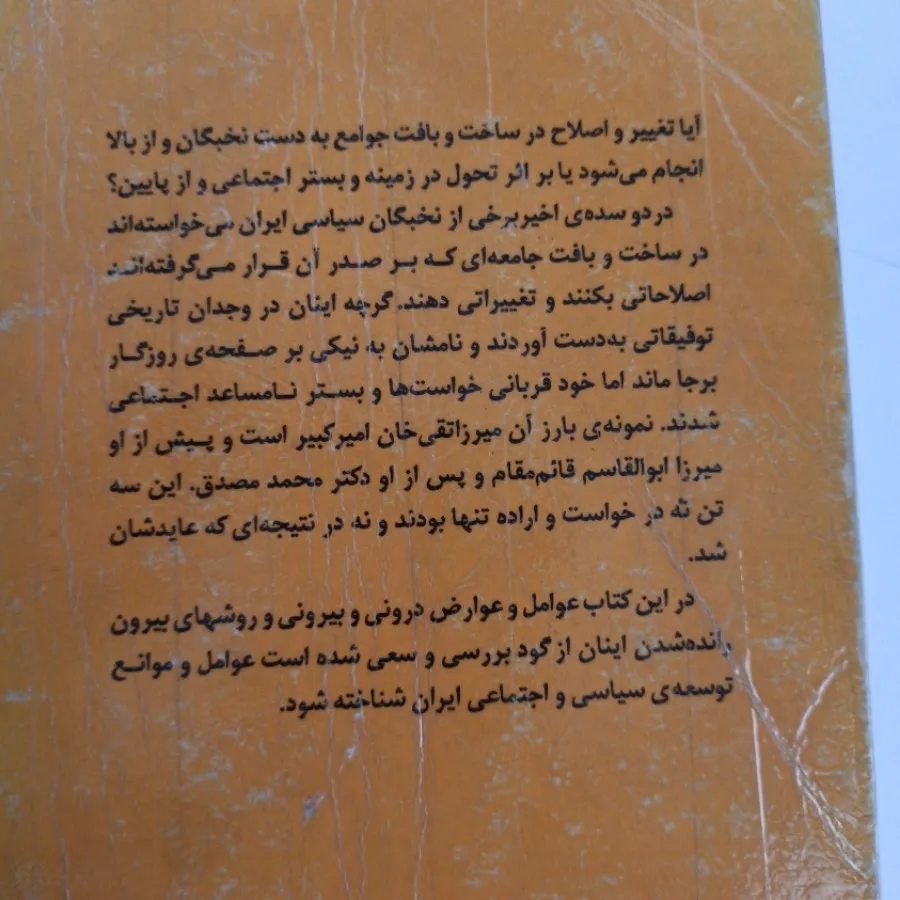 آیا تغییر و اصلاح در ساخت و بافت جوامع به دست نخبگان و از بالا
انجام می‌شود یا بر اثر تحول در زمینه و بستر اجتماعی و از پایین؟
در دو سده‌ی اخیر برخی از نخبگان سیاسی ایران می‌خواسته‌اند
در ساخت و بافت جامعه‌ای که بر صدر آن قرار می‌گرفته‌اند
اصلاحاتی بکنند و تغییراتی دهند. گرچه اینان در وجدان تاریخی
توفیقاتی به‌دست آوردند و نامشان به نیکی بر صفحه‌ی روزگار
برجا ماند اما خود قربانی خواست‌ها و بستر نامساعد اجتماعی
شدند. نمونه‌ی بارز آن میرزاتقی‌خان امیرکبیر است و پیش از او
میرزا ابوالقاسم قائم‌مقام و پس از او دکتر محمد مصدق. این سه
تن نه در خواست و اراده تنها بودند و نه در نتیجه‌ای که عایدشان
شد.
در این کتاب عوامل و عوارض درونی و بیرونی و روشهای بیرون
رانده‌شدن اینان از گود بررسی و سعی شده است عوامل و موانع
توسعه‌ی سیاسی و اجتماعی ایران شناخته شود.